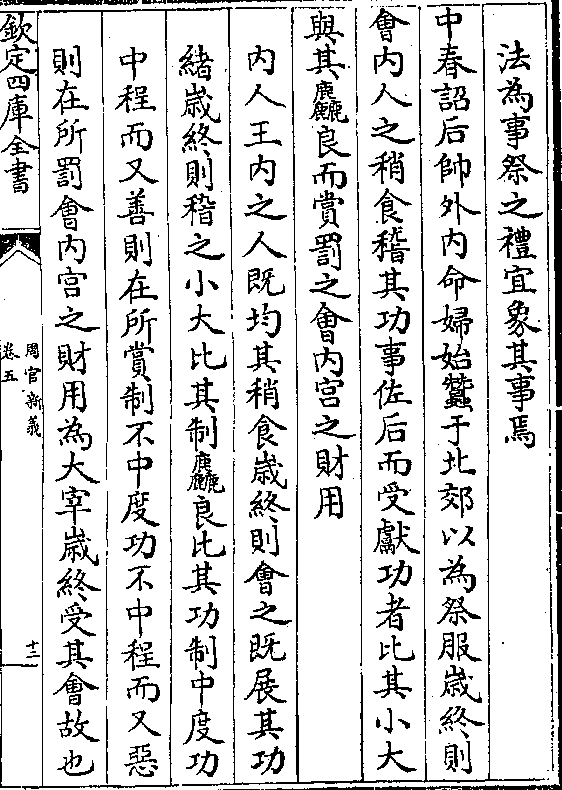 法為事祭之禮宜象其事焉
中春詔后帥外内命婦始蠶于北郊以為祭服歳終則
會内人之稍食稽其功事佐后而受獻功者比其小大
與其麤良而賞罰之會内宫之財用
内人王内之人既均其稍食歳終則會之既展其功
緒歳終則稽之小大比其制麤良比其功制中度功
中程而又善則在所賞制不中度功不中程而又惡
則在所罰會内宫之財用為大宰歳終受其會故也
欽定四庫全書
周官新義
卷五
十二